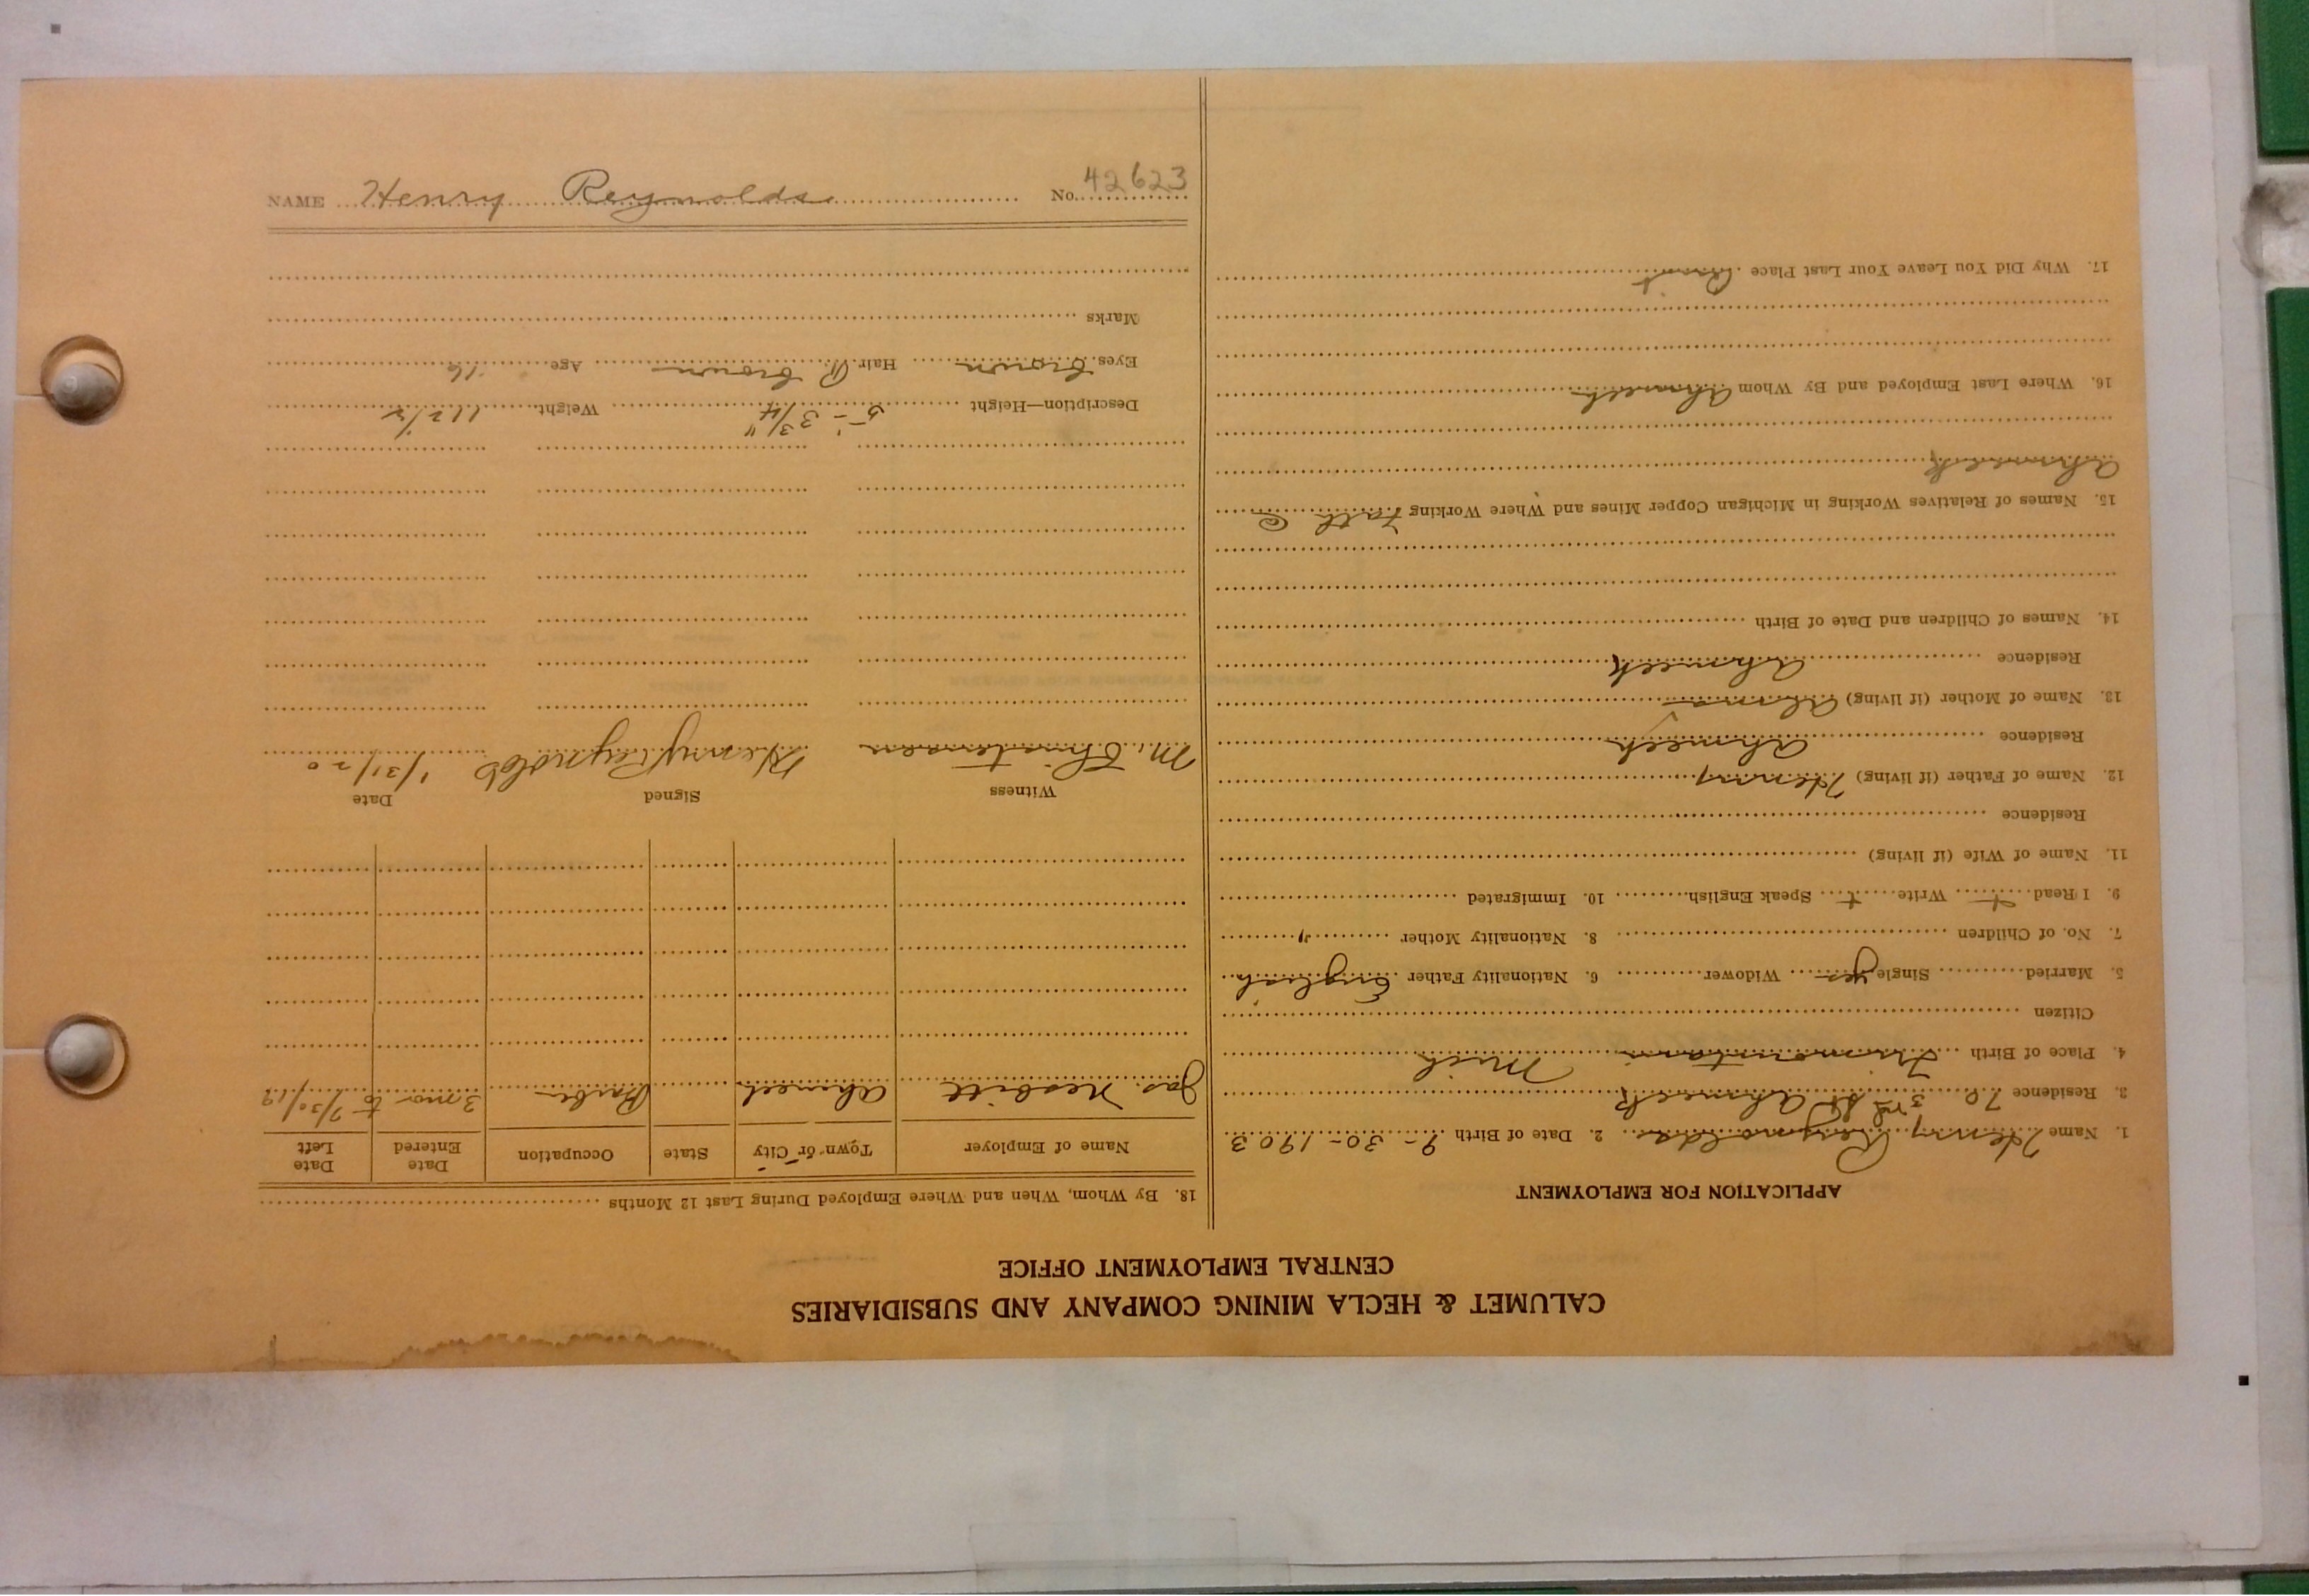 NAME Henry Reynolds No. 42623
CALUMET & HECLA MINING COMPANY AND SUBSIDIARIES
CENTRAL EMPLOYMENT OFFICE
APPLICATION FOR EMPLOYMENT
1. Name Henry Reynolds 2. Date of Birth 9-30-1903
3. Residence 70 3rd St Ahmeek
4. Place of Birth Mich
Citizen
5. Married Single yes Widower 6. Nationality Father English
7. No. of Children 8. Nationality Mother "
9. I Read + Write + Speak English 10. Immigrated
11. Name of Wife (if living)
Residence
12. Name of Father (if living) Henry
Residence Ahmeek
13. Name of Mother (if living)
Residence Ahmeek
14. Names of Children and Date of Birth
15. Names of Relatives Working in Michigan Copper Mines and Where Working Fath @
Ahmeek
16. Where Last Employed and By Whom Ahmeek
17. Why Did You Leave Your Last Place
18. By Whom, When and Where Employed During Last 12 Months
Name of Employer Town or City State Occupation Date Entered Date Left
Jas. Nesbitt Ahmeek 3 mo to 7/30/19
Witness Signed Date
M. Henry Reynolds 1/31/20
Description—Height 5'-3 3/4" Weight 112 1/2
Eyes Brown Hair Brown Age 16
Marks